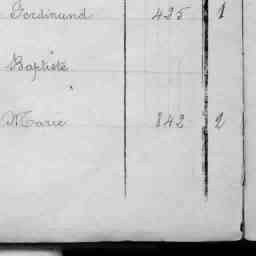 Ferdinand 425 1
Baptiste
Marie 842 2